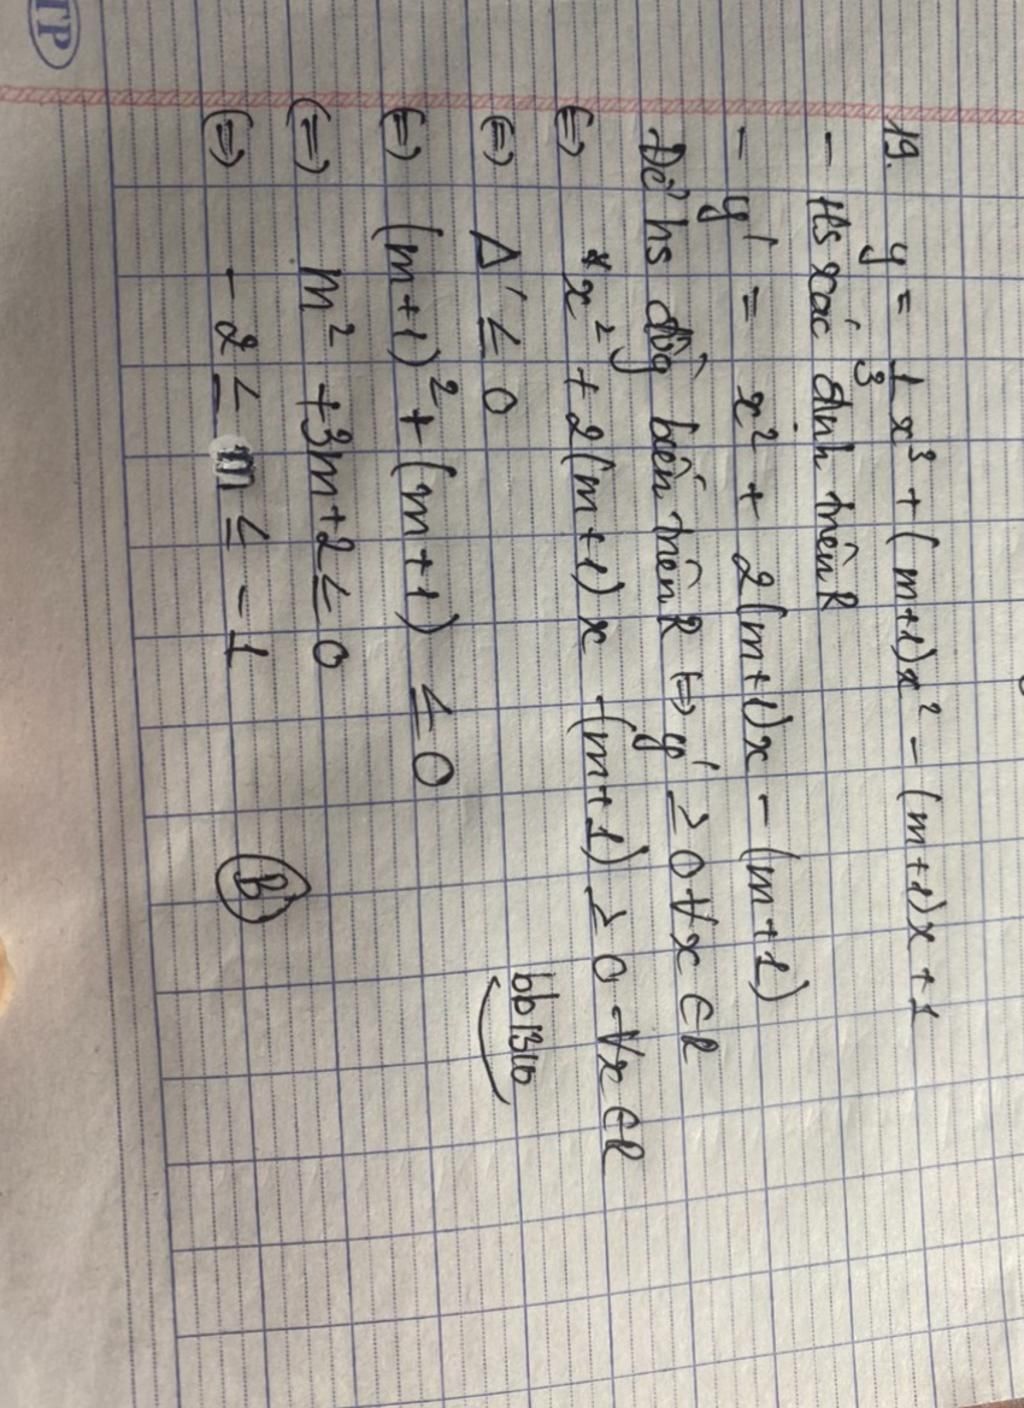 19. y = 1/3 x³ + (m+1)x² - (m+1)x + 1
- Hs xác định trên R
- y' = x² + 2(m+1)x - (m+1)
Để hs đồg biến trên R (=) y' ≥ 0 ∀x ∈ R
(=) x² + 2(m+1)x - (m+1) ≥ 0 ∀x ∈ R
(=) Δ' ≤ 0
(=) (m+1)² + (m+1) ≤ 0
(=) m² + 3m + 2 ≤ 0
(=) - 2 ≤ m ≤ - 1 (B)
TP